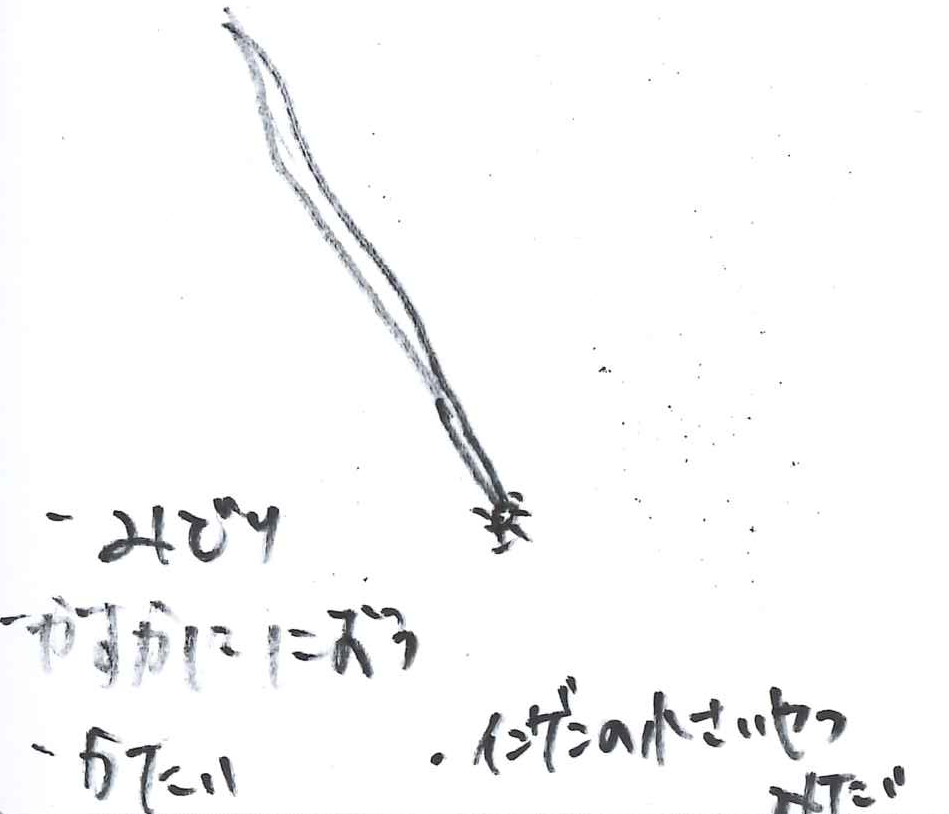 - みどり
- かすかににおう
- かたい
・インゲンの小さいやつ
みたい